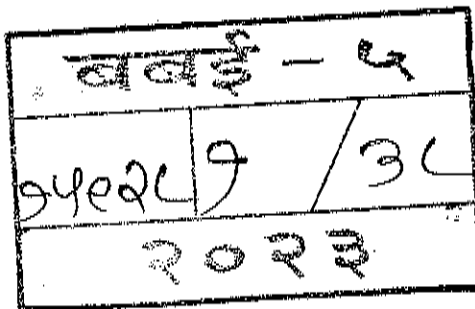 बबई - ५
१५९२८ १ / ३८
२०२३